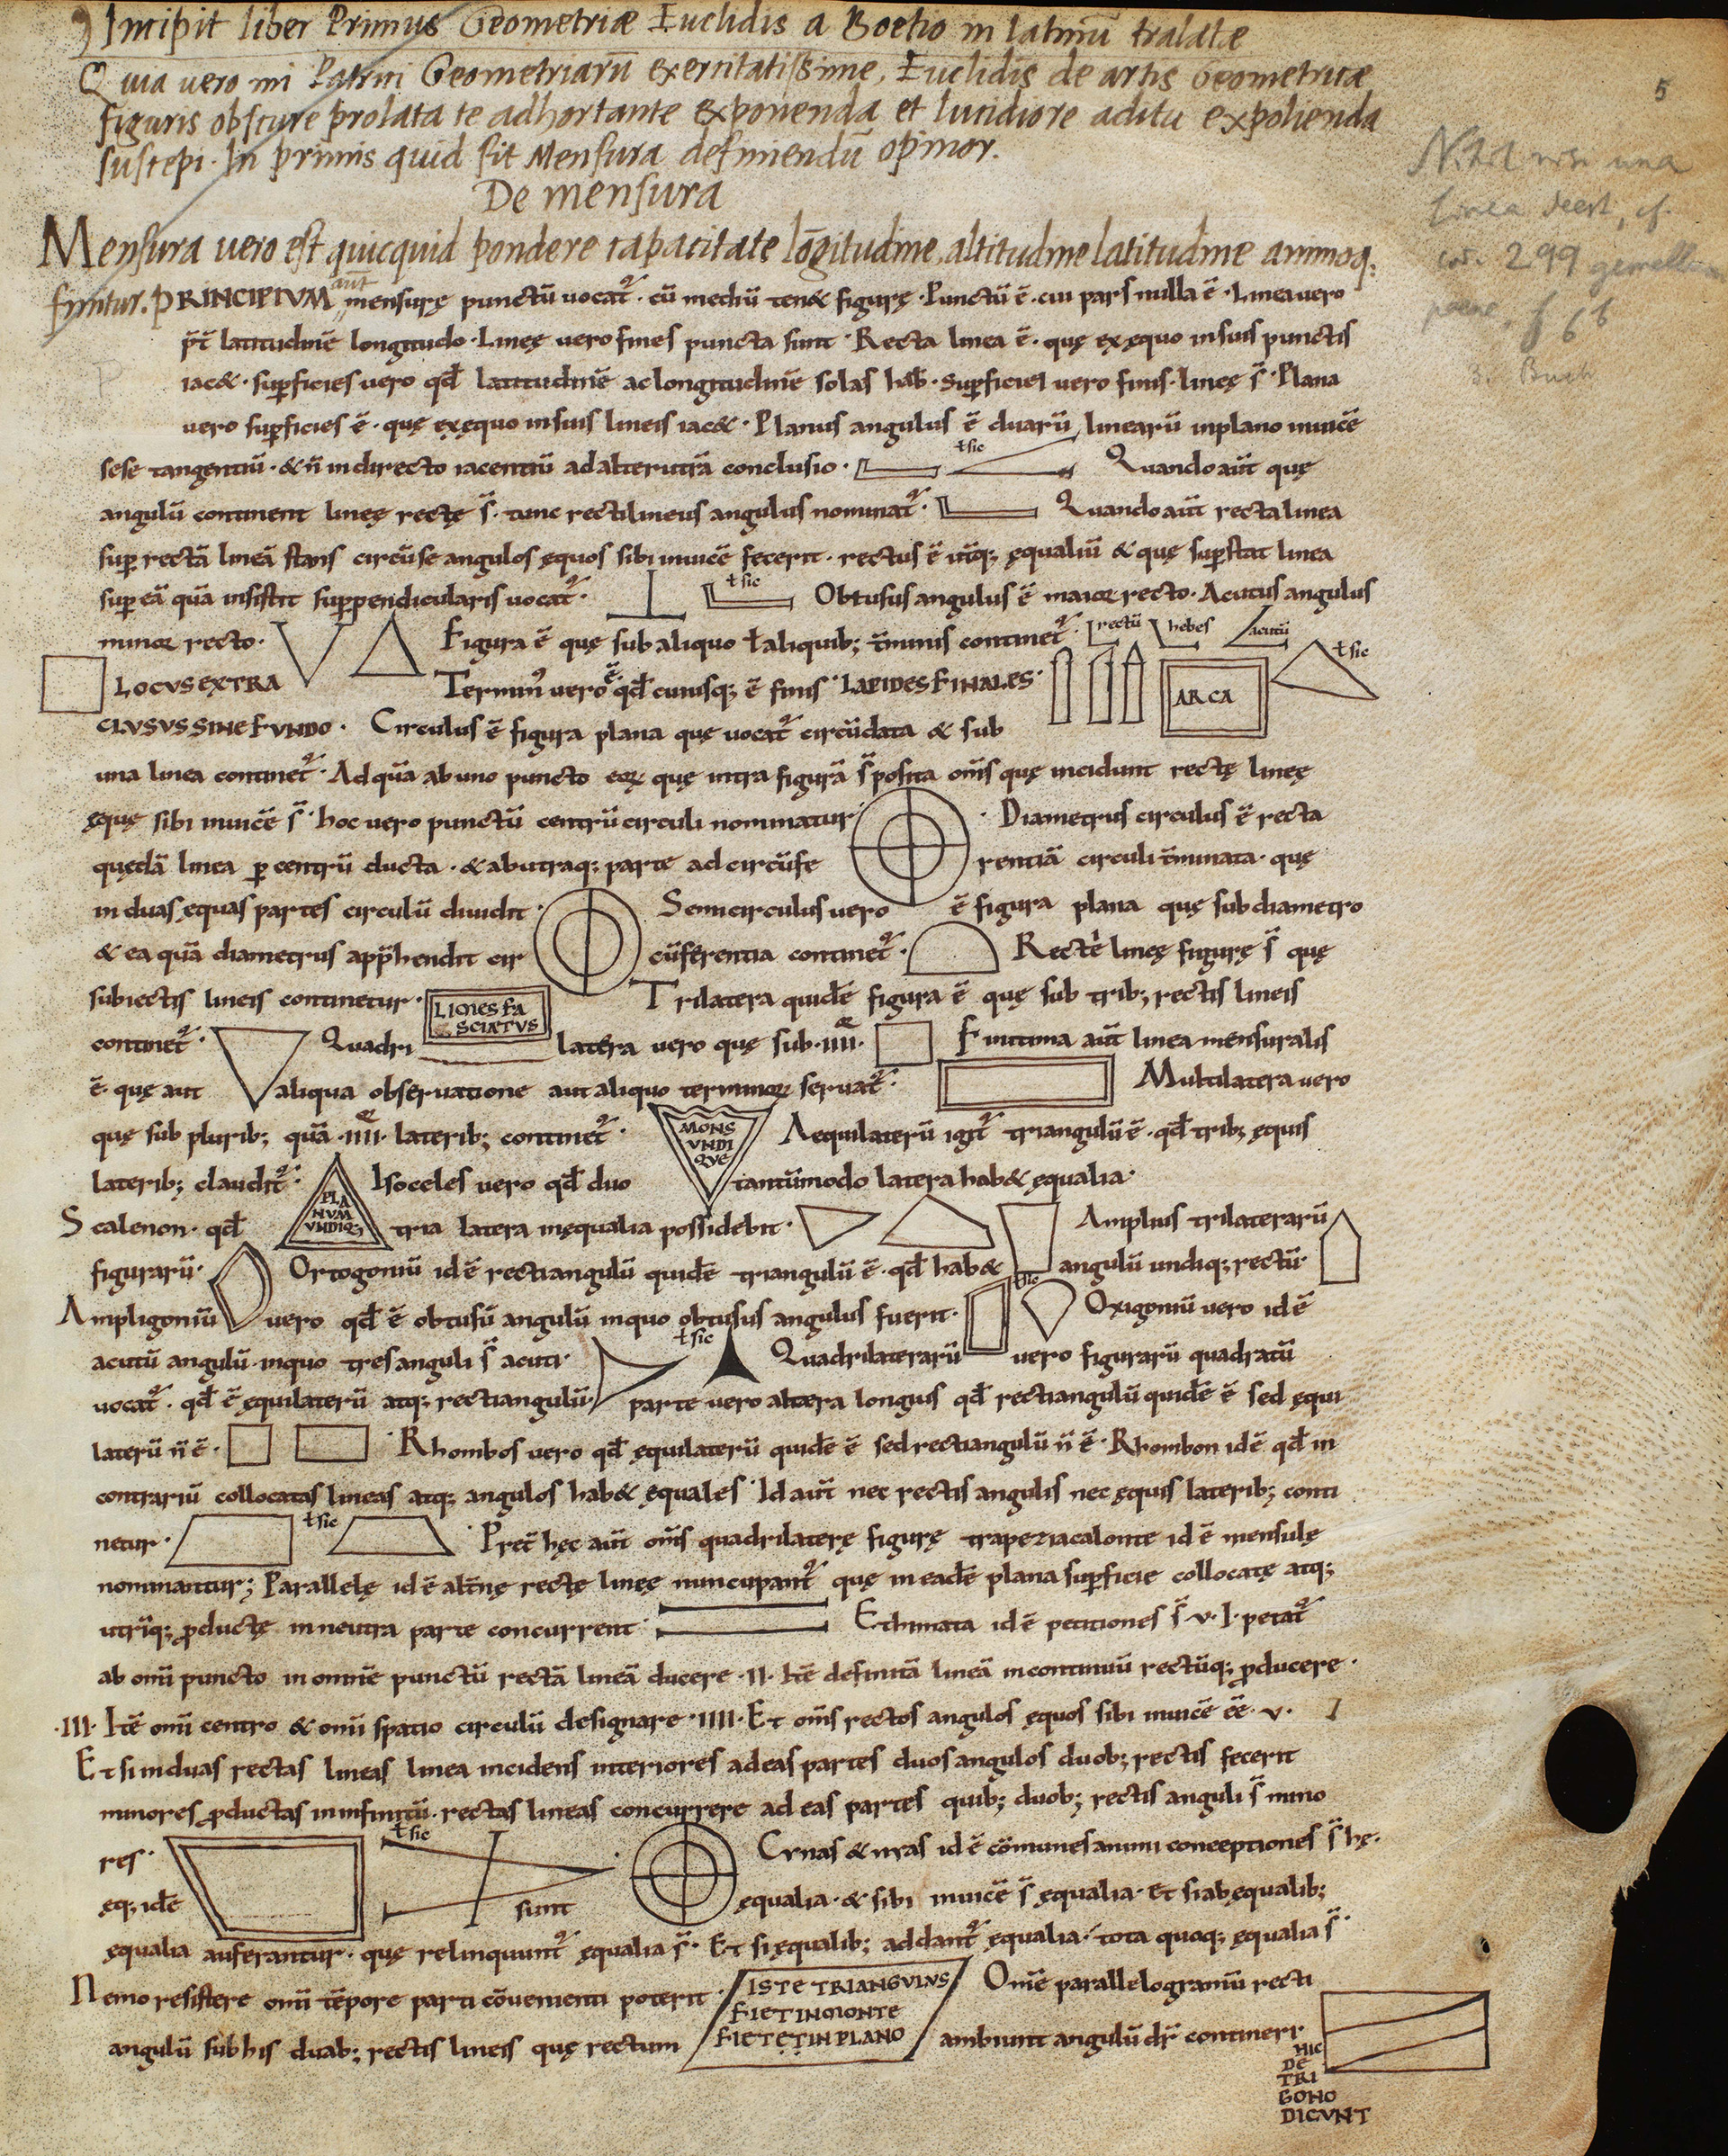 Incipit liber Primus Geometriæ Euclidis a Boetio in latinū tralatæ
Quia vero mi Patrici Geometriarū exercitatissime, Euclidis de artis Geometricæ
figuris obscure prolata te adhortante exponenda et lucidiore aditu expolienda
suscepi. In primis quid sit Mensura definiendū opinor.
De mensura
Mensura vero est quicquid pondere capacitate lōgitudine, altitudine latitudine animoq;
finitur. PRINCIPIVM aut̄ mensurę punctū uocat᷑. cū mediū ten& figurę. Punctū ē. cui pars nulla ē. Linea uero
p̄t̄ latitudinē longitudo. Linęę uero fines puncta sunt. Recta linea ē. quę ex ęquo in suis punctis
iac&. sup̱ficies uero qđ latitudinē ac longitudinē solas hab̄. Sup̱ficiei uero finis. linęę s̄. Plana
uero sup̱ficies ē. quę ex ęquo in suis lineis iac&. Planus angulus ē duarū linearū in plano inuicē
sese tangentiū. & n̄ in directo iacentiū ad alterutrā conclusio. ł sic Quando aut̄ quę
angulū continent linęę rectę s̄. tunc rectilineus angulus nominat᷑. Quando aut̄ recta linea
sup̱ rectā lineā stans circū se angulos ęquos sibi inuicē fecerit. rectus ē utq; ęqualiū & quę sup̱stat linea
sup̱ eā quā insistit sup̱pendicularis uocat᷑. ł sic Obtusus angulus ē maior recto. Acutus angulus
minor recto. Figura ē quę sub aliquo ł aliquib; t̄minis continet᷑. rectū hebes acutū
LOCVS EXTRA Termin᷒ uero ē qđ cuiusq; ē finis. LAPIDES FINALES. ARCA ł sic
CLVSVS SINE FVNDO. Circulus ē figura plana quę uocat᷑ circūdata & sub
una linea continet᷑. Ad quā ab uno puncto eoꝝ quę intra figurā s̄ posita om̄s quę incidunt rectę linęę
ęquę sibi inuicē s̄. hoc uero punctū centrū circuli nominatur. Diametrus circulus ē recta
quędā linea ꝑ centrū ducta. & ab utraq; parte ad circūfe rentiā circuli t̄minata. quę
in duas ęquas partes circulū diuidit. Semicirculus uero ē figura plana quę sub diametro
& ea quā diametrus app̄hendit cir cūferentia continet᷑. Rectę linęę figurę s̄ quę
subiectis lineis continetur. LIMES FA SCIATVS Trilatera quidē figura ē quę sub trib; rectis lineis
continet᷑. Quadri latera uero quę sub .IIII. Finitima aut̄ linea mensuralis
ē. quę aut aliqua obseruatione aut aliquo terminoꝝ seruat᷑. Multilatera uero
quę sub plurib; quā .IIII. laterib; continet᷑. MONS VNDI QVE Aequilaterū igit᷑ triangulū ē. qđ trib; ęquis
laterib; claudit᷑. PLA NVM VNDIQ; Isoceles uero qđ duo tantūmodo latera hab& ęqualia.
Scalenon. qđ tria latera inęqualia possidebit. Amplius trilaterarū
figurarū. Ortogoniū id ē rectiangulū quidē triangulū ē. qđ hab& angulū undiq; rectū.
Ampligoniū uero qđ ē obtusū angulū in quo obtusus angulus fuerit. ł sic Oxigoniū uero id ē
acutū angulū. in quo tres anguli s̄ acuti. ł sic Quadrilaterarū uero figurarū quadratū
uocat᷑. qđ ē ęquilaterū atq; rectiangulū. parte uero altera longus qđ rectiangulū quidē ē sed ęqui
laterū n̄ ē. Rhombos uero qđ ęquilaterū quidē ē sed rectiangulū n̄ ē. Rhombon id ē qđ in
contrariū collocatas lineas atq; angulos hab& ęquales. Id aut̄ nec rectis angulis nec ęquis laterib; conti
netur. ł sic Pret̄ hęc aut̄ om̄s quadrilaterę figurę trapeziacalonte id ē mensulę
nominantur; Parallelę id ē alt̄nę rectę linęę nuncupant᷑ quę in eadē plana sup̱ficie collocatę atq;
utriq; ꝓductę in neutra parte concurrent. Ethimata id ē petitiones s̄ .v. I. petat᷑
ab om̄i puncto in omnē punctū rectā lineā ducere .II. Itē definitā lineā in continuū rectūq; ꝓducere.
.III. Itē om̄i centro & om̄i spatio circulū designare .IIII. Et om̄s rectos angulos ęquos sibi inuicē ēē. v.
Et si in duas rectas lineas linea incidens interiores ad eas partes duos angulos duob; rectis fecerit
minores ꝓductas in infinitū. rectas lineas concurrere ad eas partes quib; duob; rectis anguli s̄ mino
res. ł sic Cynas & nras id ē cōmunes animi conceptiones s̄ hę.
eq; idē sunt ęqualia. & sibi inuicē s̄ ęqualia. Et si ab ęqualib;
ęqualia auferantur. quę relinquunt᷑ ęqualia s̄. Et si ęqualib; addant᷑ ęqualia. tota quoq; ęqualia s̄.
Nemo resistere om̄i tēpore parti cōuenienti poterit. ISTE TRIANGVLVS Om̄e parallelogramū recti
FIET IN MONTE
angulū sub his duab; rectis lineis quę rectum FIET ET IN PLANO ambiunt angulū dr̄ contineri
HIC
DE
TRI
GONO
DICVNT
5
Nihil nisi una
linea deest, cf.
cod. 299 gemellum
paene, f 6b